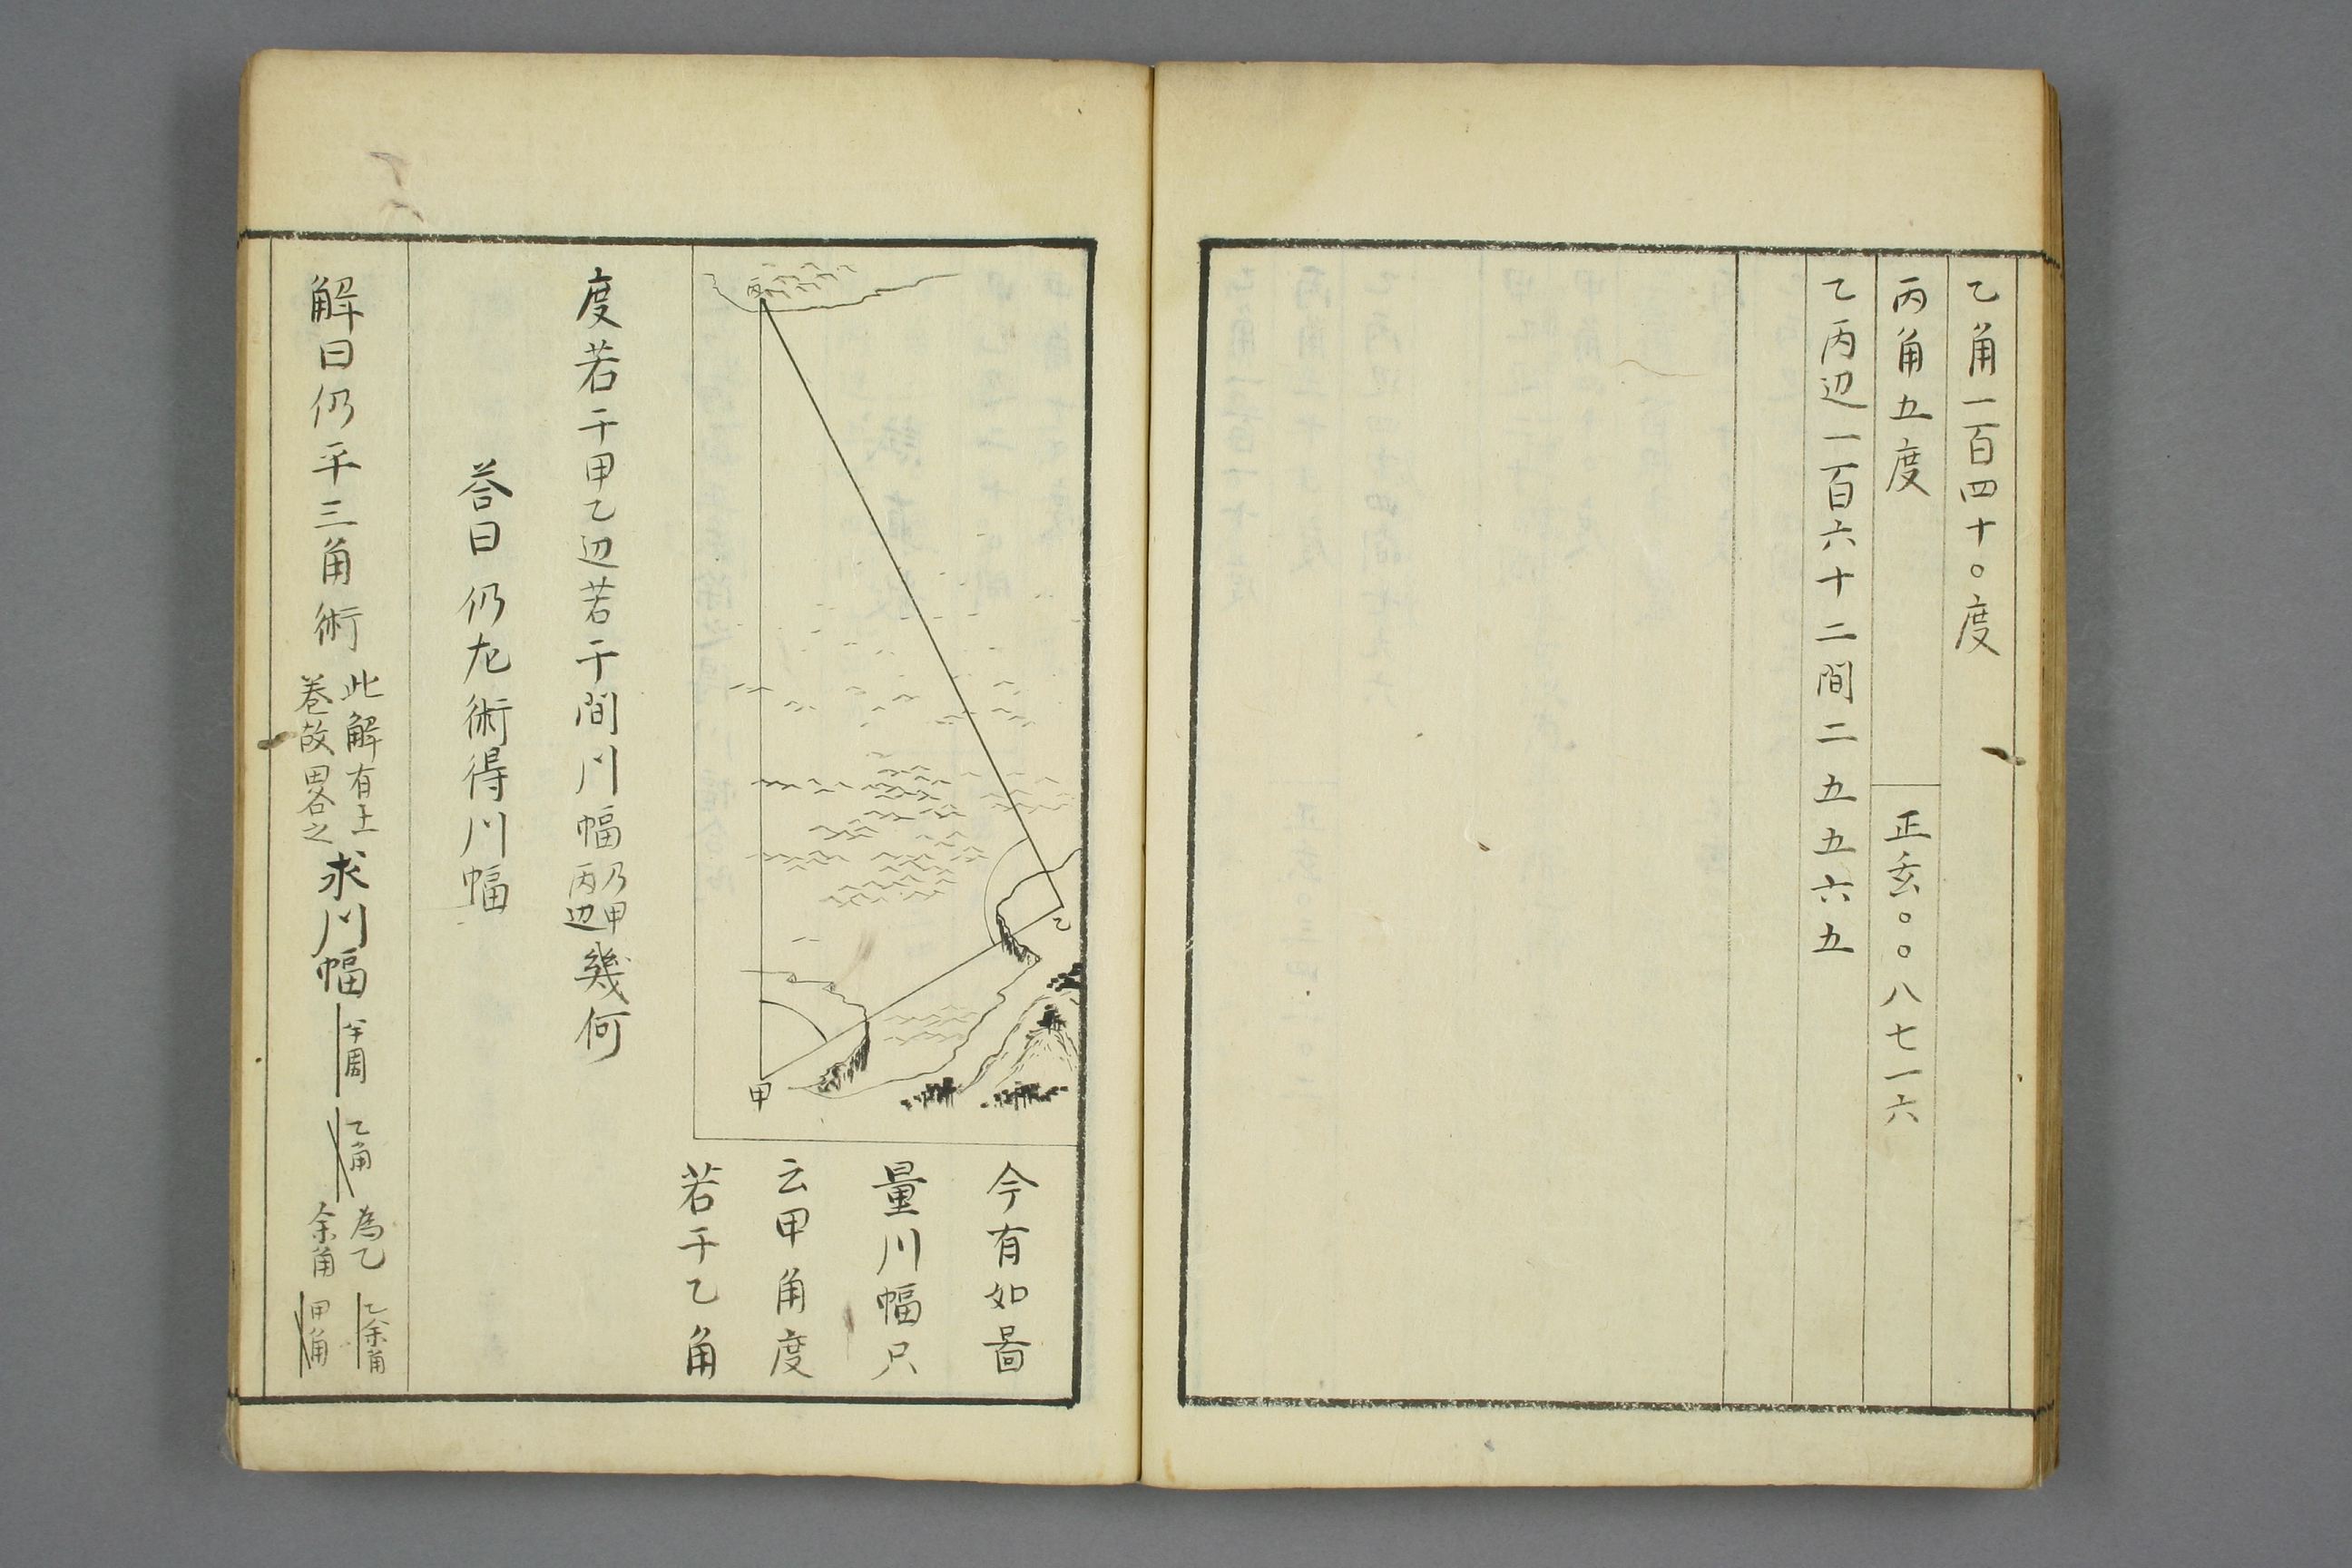 乙角一百四十〇度
丙角五度
正玄〇〇八七一六
乙丙辺一百六十二間二五五六五
丙
乙
甲
今有如啚
量川幅只
云甲角度
若干乙角
度若干甲乙辺若干間川幅
乃甲
丙辺
幾何
荅曰仍左術得川幅
解曰仍平三角術
此解有上
巻故畧之
求川幅
半周
乙角
為乙
余角
乙余角
甲角